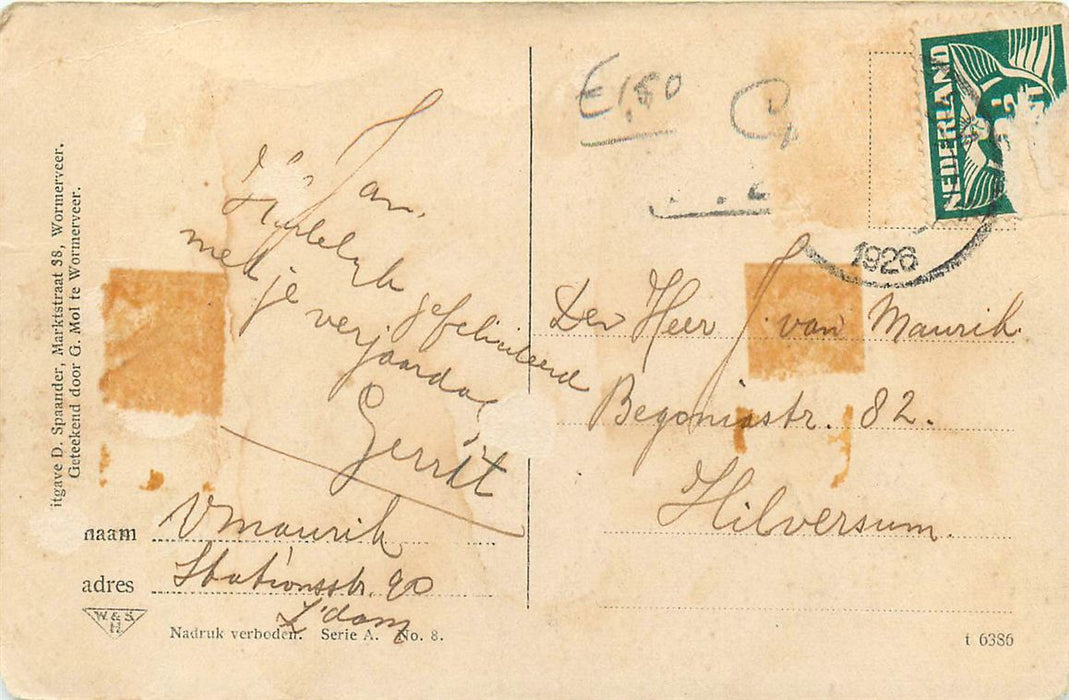 itgave D. Spaander, Marktstraat 38, Wormerveer.
Geteekend door G. Mol te Wormerveer.
Jan.
Hartelijk gefeliciteerd
met je verjaardag
Gerrit
naam V Maurik
adres Stationsstr. 90
Z'dam
W. & S.
H.
Nadruk verboden. Serie A. No. 8.
E 1,50
NEDERLAND
1926
Den Heer J. van Maurik.
Begoniastr. 82.
Hilversum.
t 6386